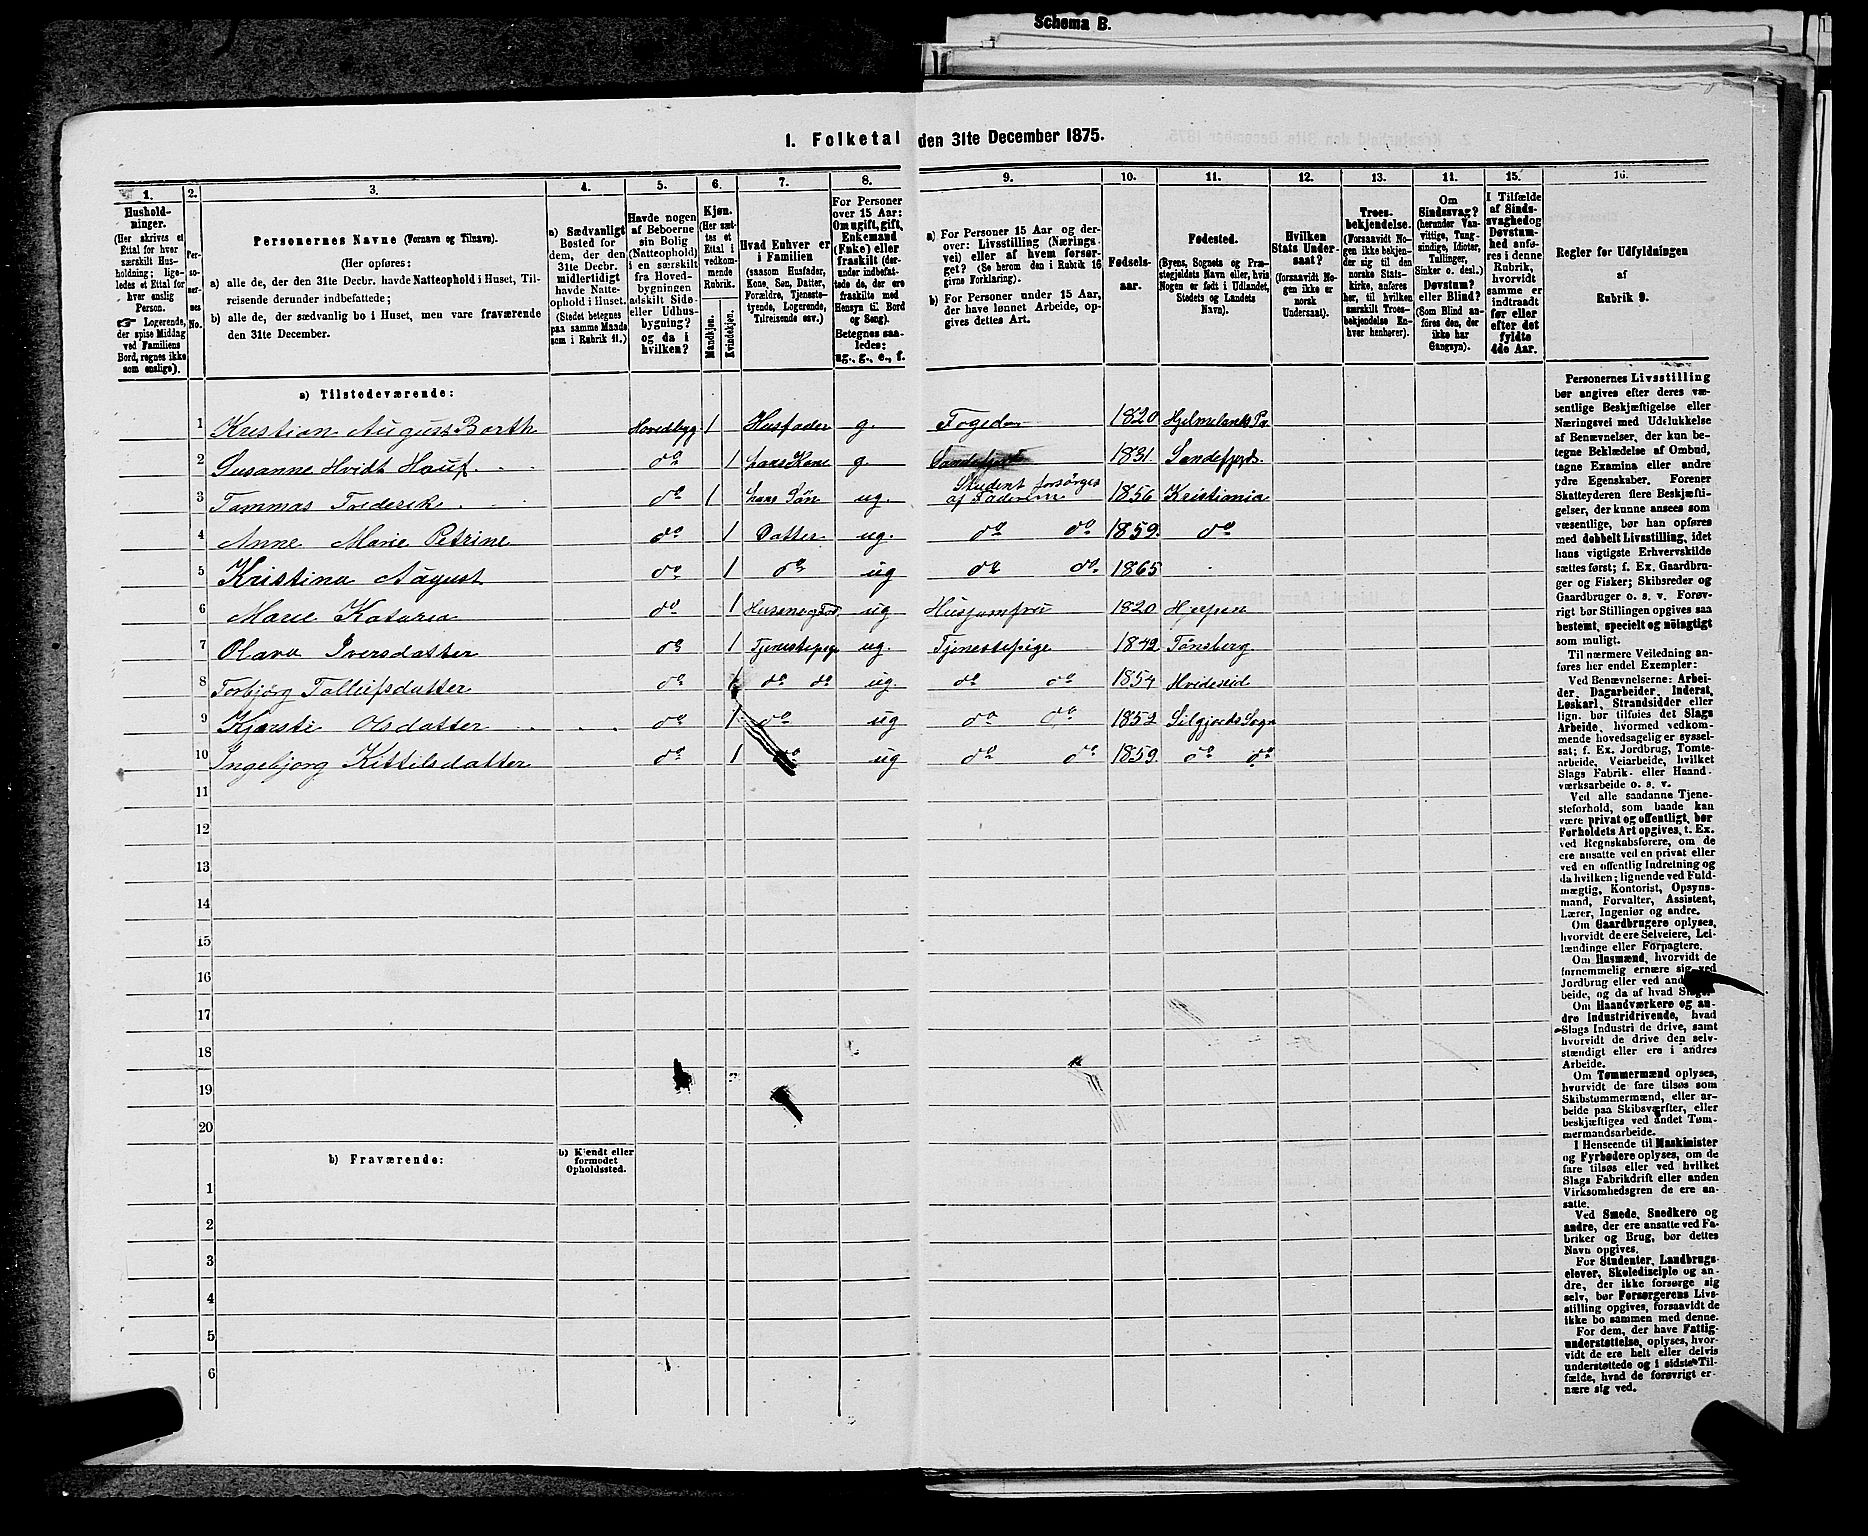 Schema B.
1. Folketal den 31te December 1875.
1. 2. 3. 4. 5. 6. 7. 8. 9. 10. 11. 12. 13. 11. 15. 16.
Hushold-
ninger.
(Her skrives et
Ettal for hver
særskilt Hus-
holdning; lige-
ledes et Ettal for
hver enslig
Person.
☞ Logerende,
der spise Middag
ved Familiens
Bord, regnes ikke
som enslige).
Per-
so-
ner-
nes
No.
Personernes Navne (Fornavn og Tilnavn).
(Her opføres:
a) alle de, der den 31te Decbr. havde Natteophold i Huset, Til-
reisende derunder indbefattede;
b) alle de, der sædvanlig bo i Huset, men vare fraværende
den 31te December.
a) Sædvanligt
Bosted for
dem, der den
31te Decbr.
midlertidigt
havde Natte-
ophold i Huset.
(Stedet betegnes
paa samme Maade
som i Rubrik 11.)
Havde nogen
af Beboerne
sin Bolig
(Natteophold)
i en særskilt
fra Hoved-
bygningen
adskilt Side-
eller Udhus-
bygning?
og da i
hvilken?
Kjøn.
(Her sæt-
tes et
Ettal i
vedkom-
mende
Rubrik.
Mandkjøn.
Kvindekjøn.
Hvad Enhver er
i Familien
(saasom Husfader,
Kone, Søn, Datter,
Forældre, Tjeneste-
tyende, Logerende,
Tilreisende osv.)
For Personer
over 15 Aar:
Om ugift, gift,
Enkemand
(Enke) eller
fraskilt (der-
under indbefat-
tede de, der ere
fraskilte med
Hensyn til Bord
og Seng).
Betegnes saa-
ledes:
ug., g., e., f.
a) For Personer 15 Aar og der-
over: Livsstilling (Nærings-
vei) eller af hvem forsør-
get? (Se herom den i Rubrik 16
givne Forklaring).
b) For Personer under 15 Aar,
der have lønnet Arbeide, op-
gives dettes Art.
Fødsels-
aar.
Fødested.
(Byens, Sognets og Præ-
stegjeldets Navn eller, hvis
Nogen er født i Udlandet,
Stedets og Landets
Navn).
Hvilken
Stats Under-
saat?
(forsaavidt No-
gen ikke er
norsk
Undersaat).
Troes-
bekjendelse.
(Forsaavidt No-
gen ikke bekjen-
der sig til den
norske Stats-
kirke, anføres
her, til hvilken
særskilt Troes-
bekjendelse En-
hver henhører).
Om
Sindssvag?
(herunder Van-
vittige, Tung-
sindige, Idioter,
Tullinger,
Sinker o. desl.)
Døvstum?
eller Blind?
(Som Blind an-
føres den, der
ikke har
Gangsyn).
I Tilfælde
af Sinds-
svaghed og
Døvstum-
hed anfø-
res i denne
Rubrik,
hvorvidt
samme er
indtraadt
før eller
efter det
fyldte
4de Aar.
Regler for Udfyldningen
af
Rubrik 9.
a) Tilstedeværende:
1 Kristian August Barth Hovedbyg 1 Husfader g. Foged 1820 Hjelmelands Pr.
2 Susanne Hvidt Houf do 1 hans Kone g. 1831. Sandefjord.
3 Tommas Frederik do 1 hans Søn ug. Student forsørges
af Faderen 1856 Kristiania
4 Anne Marie Petrine do 1 Datter ug. do do 1859. do
5 Kristina August do 1 do ug do do 1865
6 Marie Do 1 ug Husjomfru 1820
7 Olava Iversdatter do 1 Tjenestepige ug. Tjenestepige 1842 Tønsberg
8 Torbjörg Tolliefsdatter do 1 do do ug. do do 1854 Hvideseid
9 Kjersti Olsdatter do 1 do ug do do 1852 Silgjords Sogn
10 Ingebjorg Kittilsdatter do 1 do ug do do 1859. do do
11
12
13
14
15
16
17
18
19
20
b) Fraværende:
b) Kjendt eller
formodet
Opholdssted.
1
2
3
4
5
6
Personernes Livsstilling
bør angives efter deres væ-
sentlige Beskjæftigelse eller
Næringsvei med Udelukkelse
af Benævnelser, der kun be-
tegne Beklædelse af Ombud,
tagne Examina eller andre
ydre Egenskaber. Forener
Skatteyderen flere Beskjæfti-
gelser, der kunne ansees som
væsentlige, bør han opføres
med dobbelt Livsstilling, idet
hans vigtigste Erhvervskilde
sættes først; f. Ex. Gaardbru-
ger og Fisker; Skibsreder og
Gaardbruger o. s. v. Forøv-
rigt bør Stillingen opgives saa
bestemt, specielt og nöiagtigt
som muligt.
Til nærmere Veiledning an-
føres her endel Exempler:
Ved Benævnelserne: Arbei-
der, Dagarbeider, Inderst,
Løskarl, Strandsidder eller
lign. bør tilføies det Slags
Arbeide, hvormed vedkom-
mende hovedsagelig er syssel-
sat; f. Ex. Jordbrug, Tomte-
arbeide, Veiarbeide, hvilket
Slags Fabrik- eller Haand-
værksarbeide o. s. v.
Ved alle saadanne Tjene-
steforhold, som baade kan
være privat og offentligt, bør
Forholdets Art opgives, t. Ex.
ved Regnskabsførere, om de
ere ansatte ved en privat eller
ved en offentlig Indretning og
da hvilken; lignende ved Fuld-
mægtig, Kontorist, Opsyns-
mand, Forvalter, Assistent,
Lærer, Ingeniør og andre.
Om Gaardbrugere oplyses,
hvorvidt de ere Selveiere, Lei-
lændinge eller Forpagtere.
Om Husmænd, hvorvidt de
fornemmelig ernære sig ved
Jordbrug eller ved andet Ar-
beide, og da af hvad Slags.
Om Haandværkere og an-
dre Industridrivende, hvad
Slags Industri de drive, samt
hvorvidt de drive den selv-
stændigt eller ere i andres
Arbeide.
Om Tømmermænd oplyses,
hvorvidt de fare tilsøs som
Skibstømmermænd, eller ar-
beide paa Skibsværfter, eller
beskjæftiges ved andet Tøm-
mermandsarbeide.
I Henseende til Maskinister
og Fyrbødere oplyses, om de
fare tilsøs eller ved hvilket
Slags Fabrikdrift eller anden
Virksomhedsgren de ere an-
satte.
Ved Smede, Snedkere og
andre, der ere ansatte ved Fa-
briker og Brug, bør dettes
Navn opgives.
For Studenter, Landbrugs-
elever, Skoledisciple og an-
dre, der ikke forsørge sig
selv, bør Forsørgerens Livs-
stilling opgives, forsaavidt de
ikke bo sammen med denne.
For dem, der have Fattig-
understøttelse, oplyses, hvor-
vidt de ere helt eller delvis
understøttede og i sidste Til-
fælde, hvad de forøvrigt er-
nære sig ved.